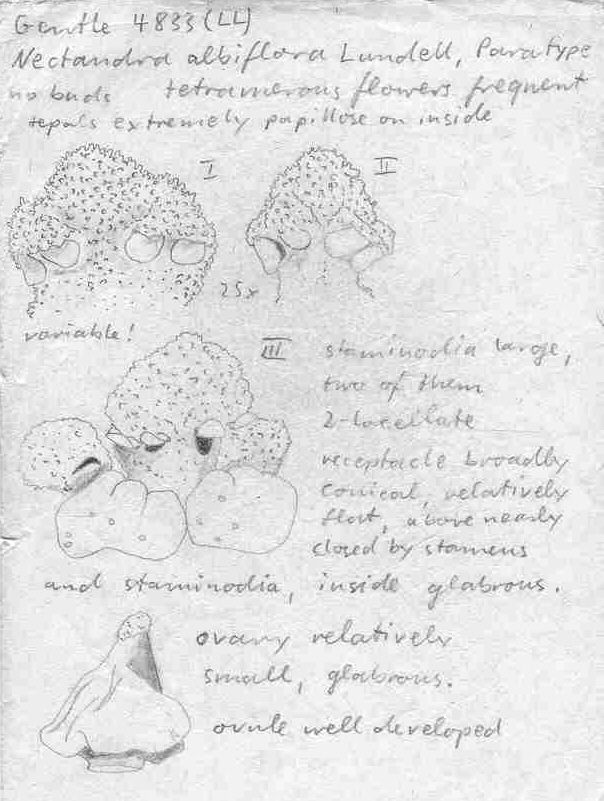 Gentle 4833 (LL)
Nectandra albiflora Lundell, Paratype
no buds tetramerous flowers frequent
tepals extremely papillose on inside
I II
25x
variable!
III staminodia large,
two of them
2-locellate
receptacle broadly
conical, relatively
flat, above nearly
closed by stamens
and staminodia, inside glabrous.
ovary relatively
small, glabrous.
ovule well developed